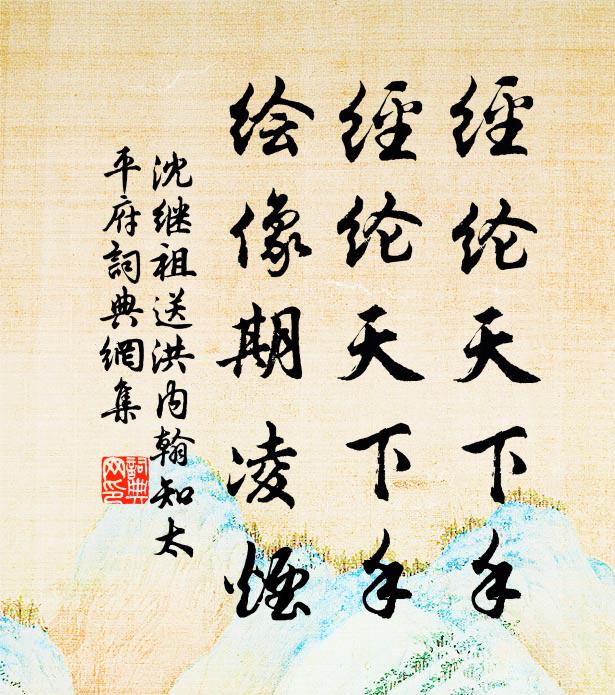 經纶天下手
經纶天下手
绘像期凌煙
沈继祖送洪内翰知太
平府詞典網集
詞典
网印